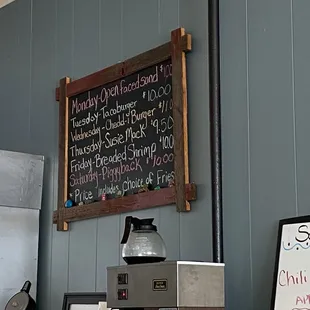 Monday-Open faced sand $10
Tuesday-Tacoburger $10.00
Wednesday-Chedd'r Burger $11
Thursday-Susie Mack $9.50
Friday-Breaded Shrimp $100
Saturday-Piggyback $10.00
*Price includes choice of Fries
S
Chili